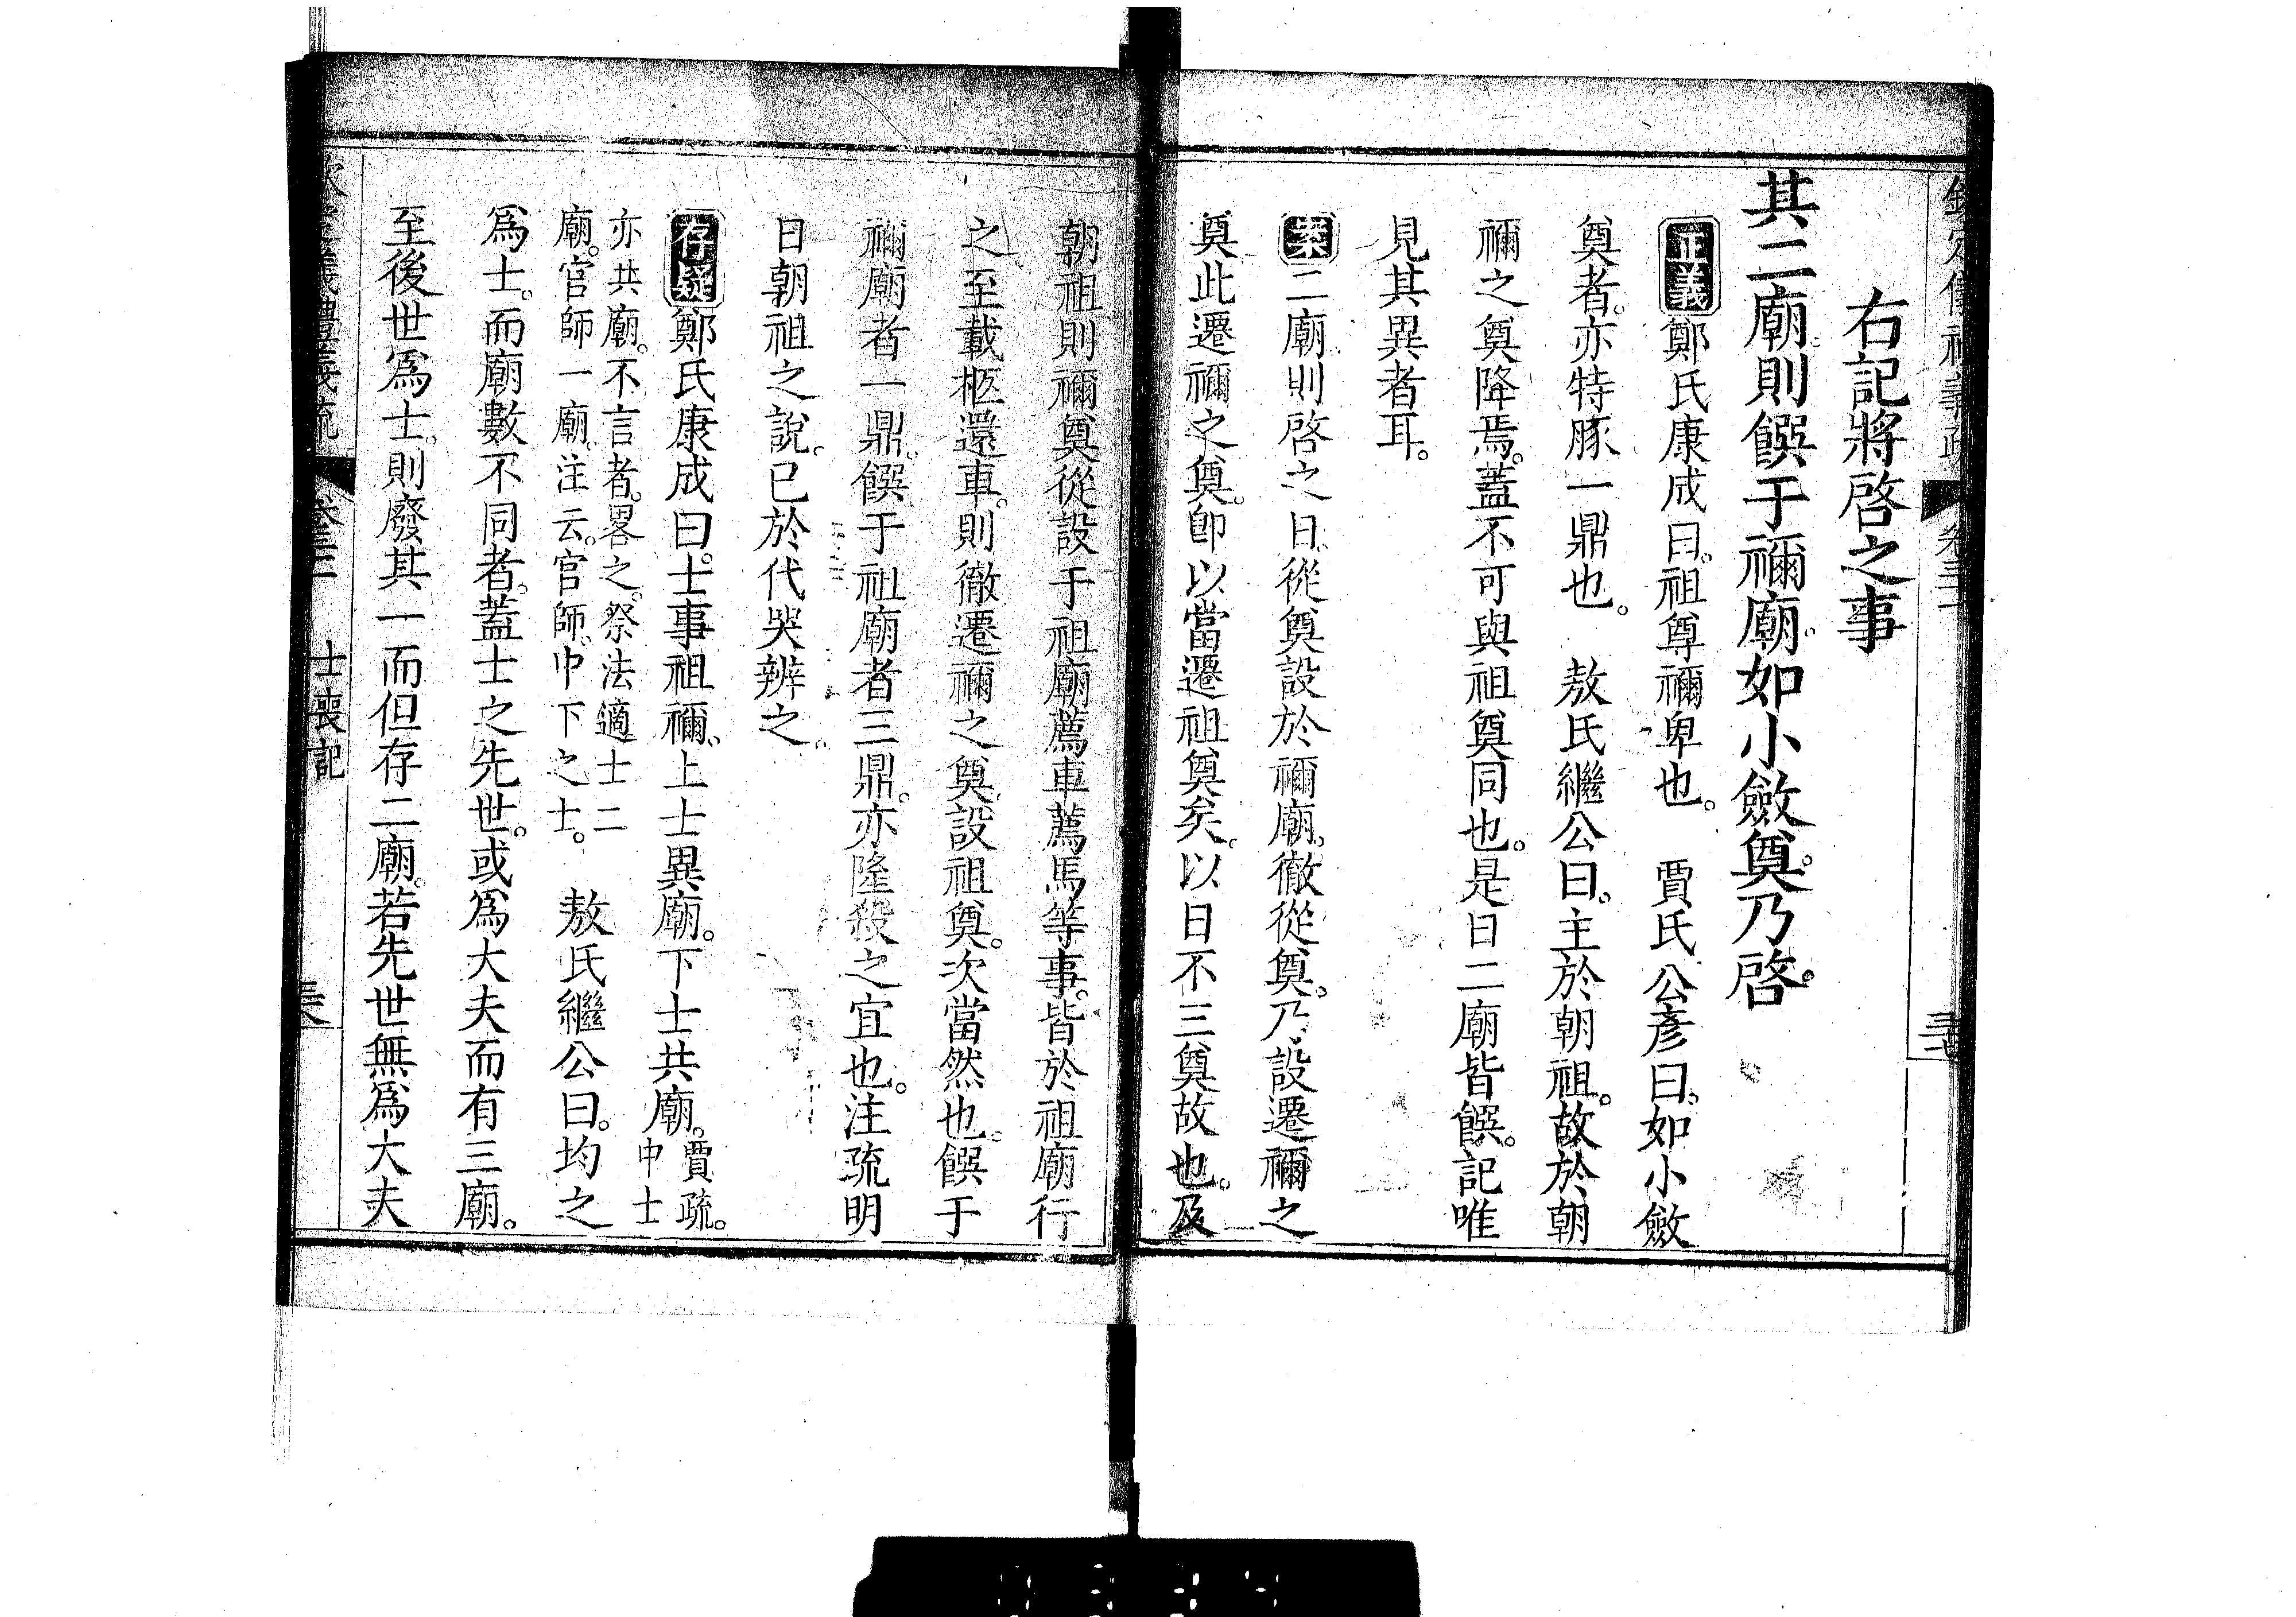 欽定儀禮義疏 卷三十一
右記將啓之事
其二廟則饌于禰廟。如小斂奠。乃啓。
正義鄭氏康成曰。祖尊禰卑也。 賈氏公彥曰。如小斂
奠者。亦特豚一鼎也。 敖氏繼公曰。主於朝祖。故於朝
禰之奠降焉。蓋不可與祖奠同也。是日二廟皆饌。記唯
見其異者耳。
案二廟則啓之日。從奠設於禰廟。徹從奠。乃設遷禰之
奠此遷禰之奠。卽以當遷祖奠矣。以日不三奠故也。及
朝祖則禰奠從設于祖廟薦車薦馬等事。皆於祖廟行
之至載柩還車。則徹遷禰之奠。設祖奠。次當然也。饌于
禰廟者一鼎。饌于祖廟者三鼎。亦隆殺之宜也。注疏明
日朝祖之說。已於代哭辨之。
存疑鄭氏康成曰。士事祖禰。上士異廟。下士共廟。賈疏。中士
亦共廟。不言者。畧之。祭法適士二
廟。官師一廟。注云。官師。中下之士。 敖氏繼公曰。均之
爲士。而廟數不同者。蓋士之先世。或爲大夫而有三廟。
至後世爲士。則廢其一而但存二廟。若先世無爲大夫
義禮義疏 士喪記